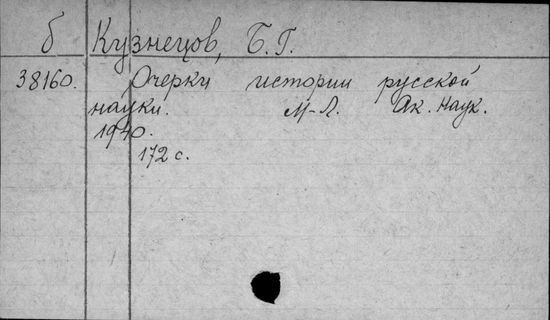 б Кузнецов, Б.Г.
38160. Очерки истории русской
науки. М-Л. Ак. Наук.
1940.
172 с.